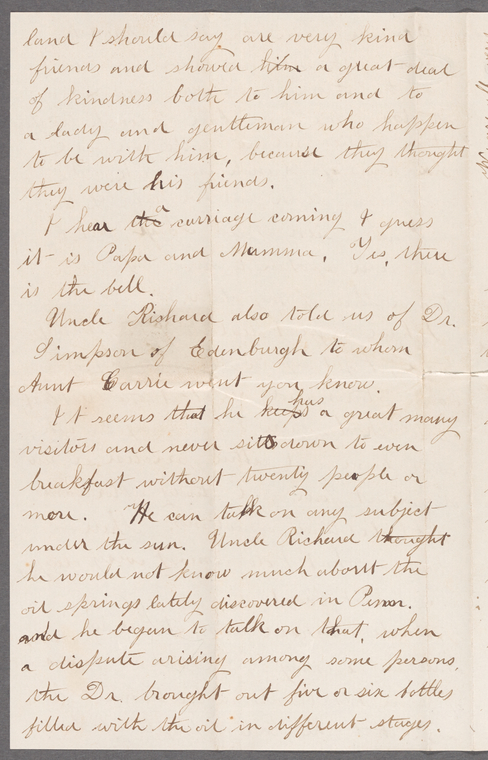 land I should say are very kind
friends and showed him a great deal
of kindness both to him and to
a lady and gentleman who happen
to be with him, because they thought
they were his friends.
I hear the a carriage coming I guess
it is Papa and Mamma. Yes, there
is the bell.
Uncle Richard also told us of Dr.
Simpson of Edenburgh to whom
Aunt Carrie went you know.
It seems that he keeps has a great many
visitors and never sitts down to even
breakfast without twenty people or
more. He can talk on any subject
under the sun. Uncle Richard thought
he would not know much about the
oil springs lately discovered in Penn.
and he began to talk on that, when
a dispute arising among some persons,
the Dr. brought out five or six bottles
filled with the oil in different stages.